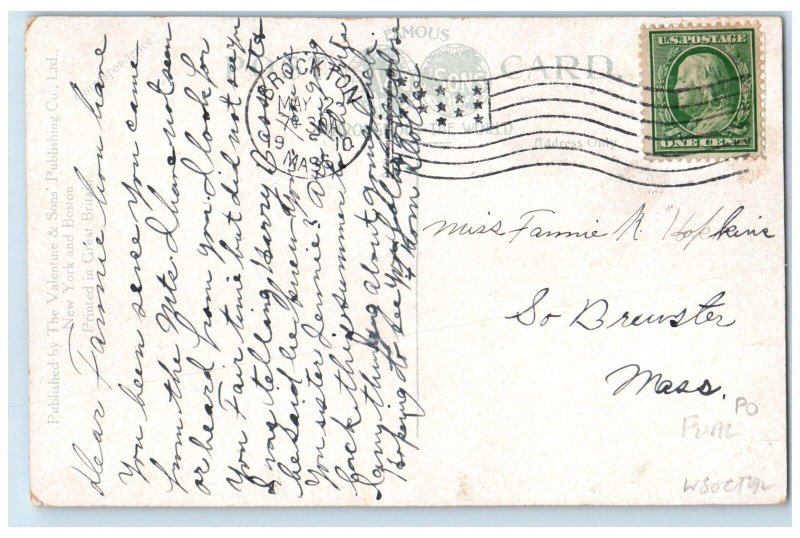 Published by The Valentine & Sons' Publishing Co., Ltd.,
New York and Boston
Printed in Great Britain
Correspondence
FAMOUS
POST CARD.
THE WORLD
Address Only
BROCKTON
MAY 2
19 10
MASS.
U.S. POSTAGE
ONE CENT
Dear Fannie how have
you been sence you came
from the Mts. I have not seen
or heard from you. I look for
you Fair time but did not see you
I was telling Harry Bassett
he said he knew you
you sister Jennie? Do
back this summer
any thing about
hoping to see you
Miss Fannie N. Hopkins
So Brewster
Mass.
PO